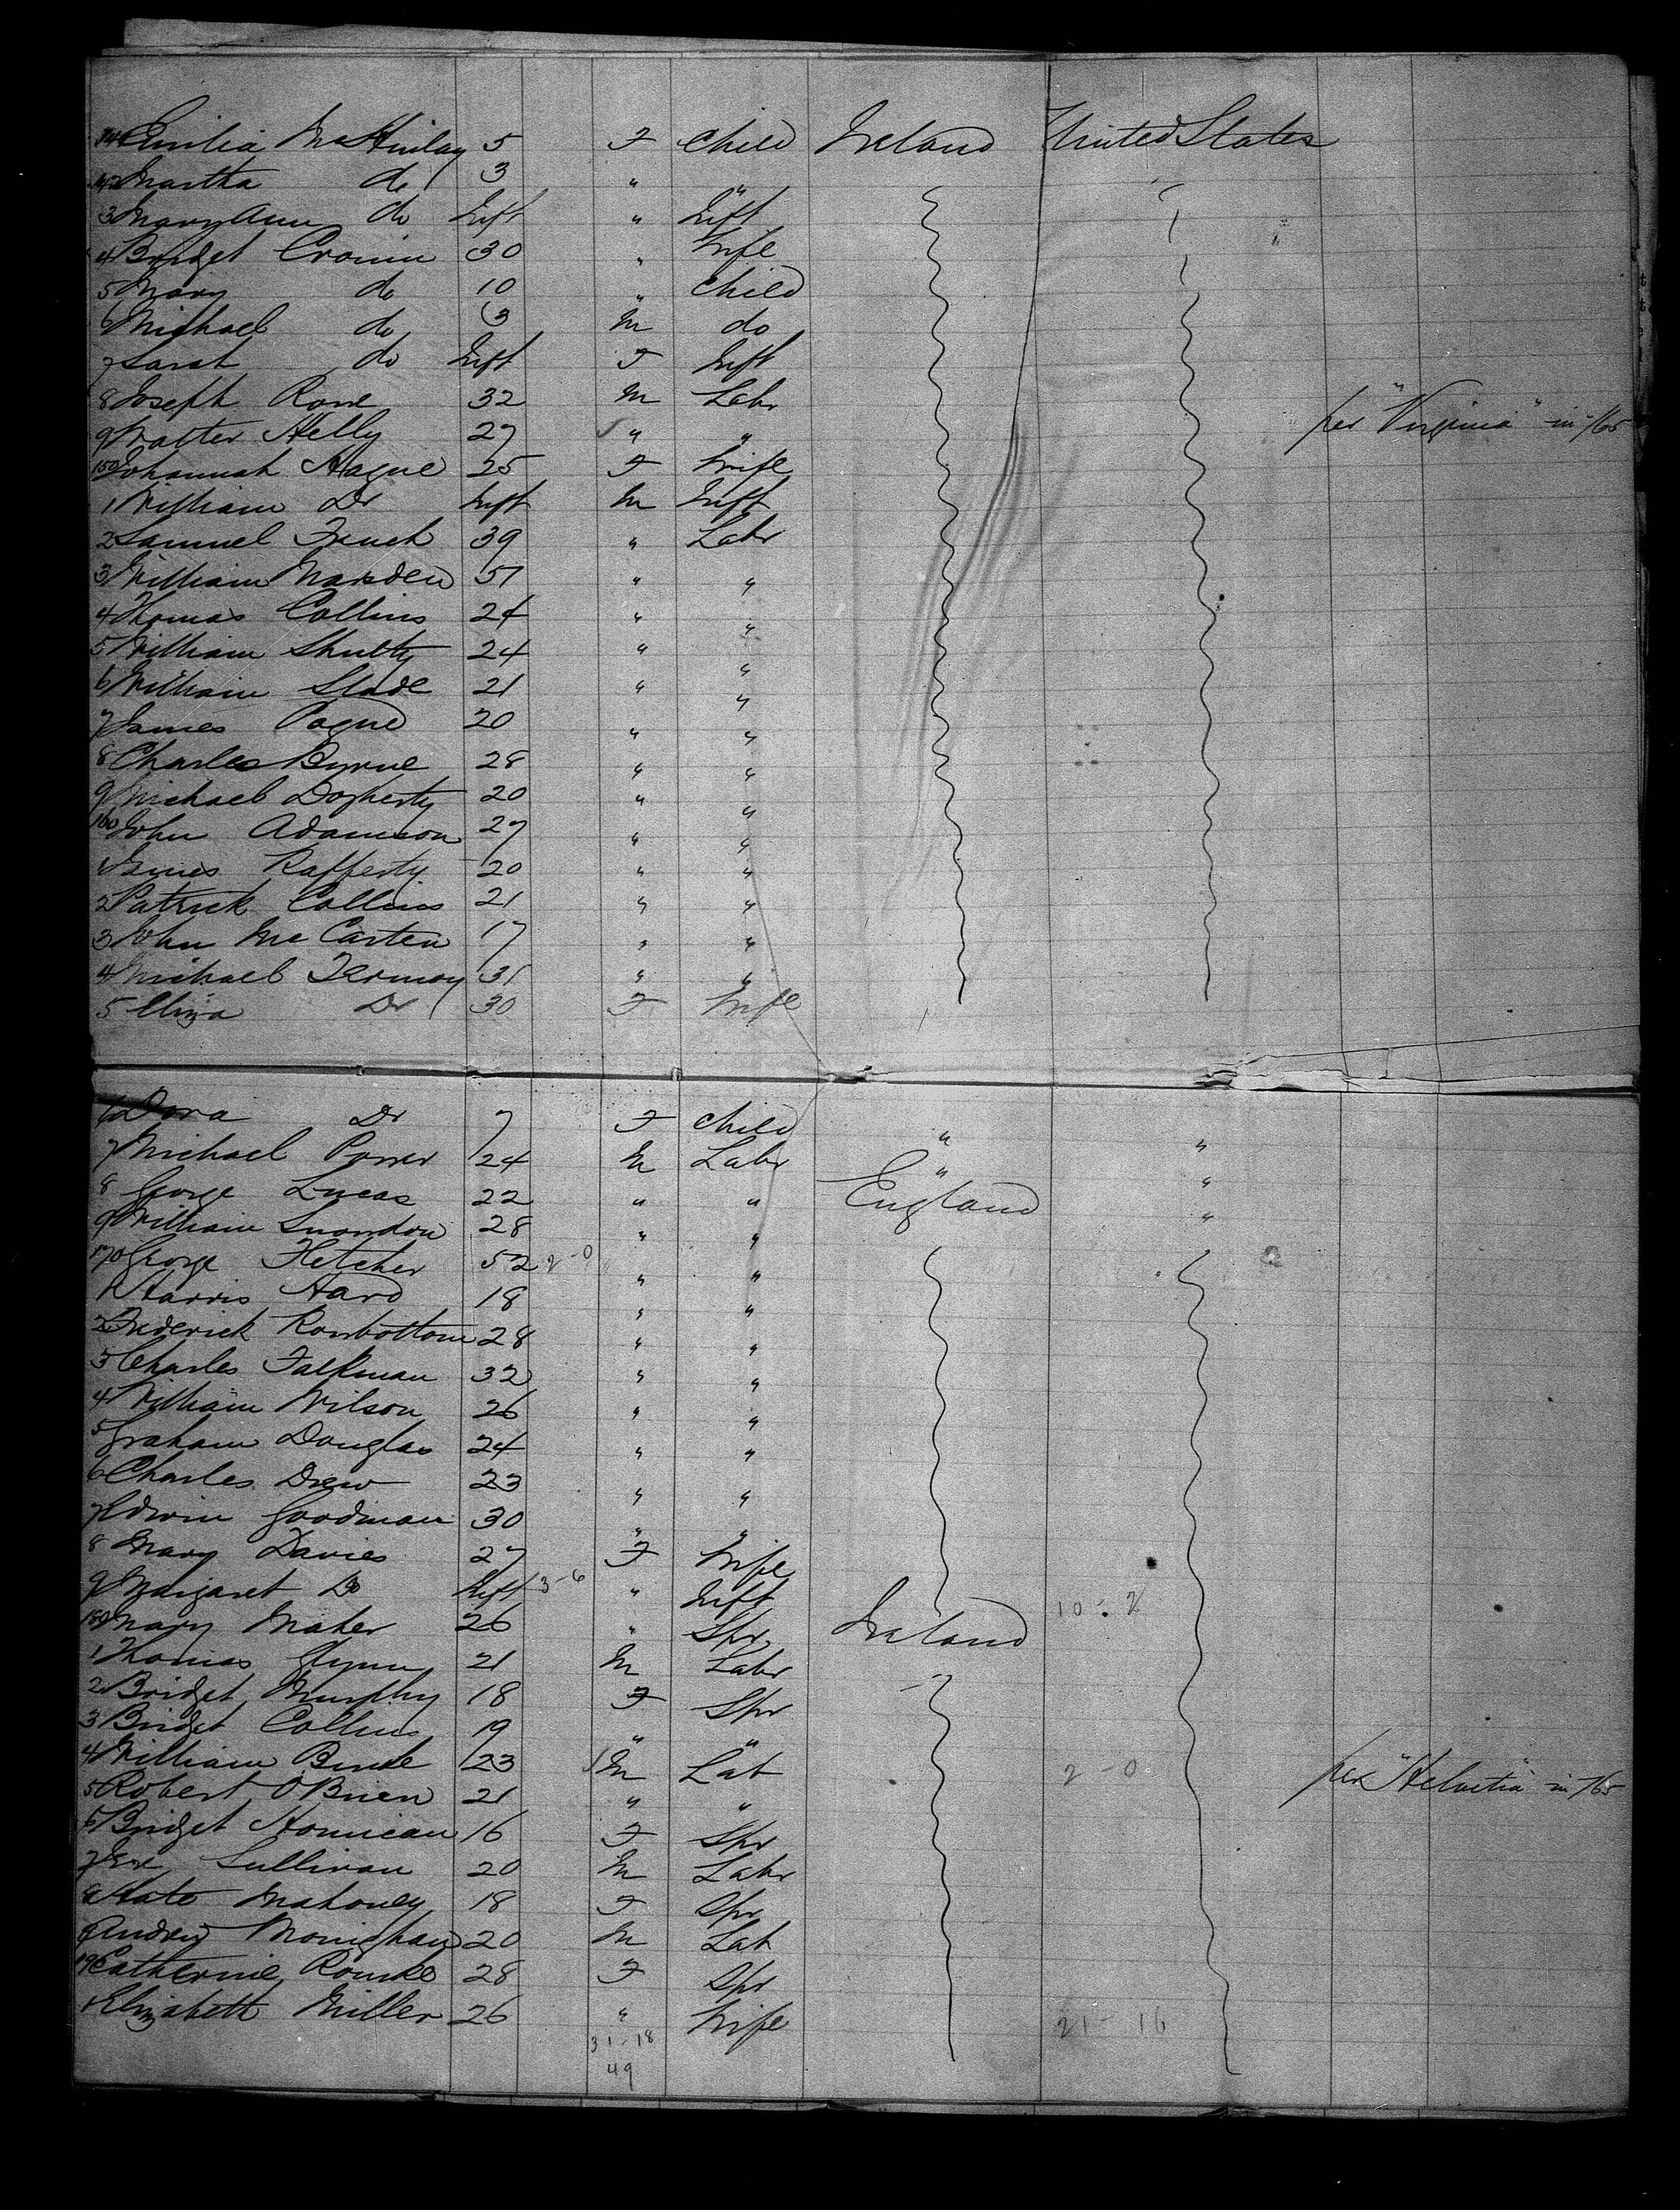 Emilia McKinlay 5 F Child Ireland United States
142 Martha do 3 " "
3 Mary Ann do Inft " Inft
4 Bridget Cronin 30 " Wife
5 Mary do 10 " Child
6 Michael do 3 M do
7 Sarah do Inft F Inft
8 Joseph Rowe 32 M Labr
9 Walter Kelly 27 " " per "Virginia" in /65
150 Johannah Hague 25 F Wife
1 William Do Inft M Inft
2 Samuel French 39 " Labr
3 William Marsden 51 " "
4 Thomas Collins 24 " "
5 William 24 " "
6 William Slade 21 " "
7 James 20 " "
8 Charles Byrne 28 " "
9 Michael Dogherty 20 " "
160 John Adamson 27 " "
1 James Rafferty 20 " "
2 Patrick Collins 21 " "
3 John McCarten 17 " "
4 Michael Fermoy 31 " "
5 Eliza Do 30 F Wife
6 Dora Do 7 F Child " "
7 Michael Power 24 M Labr " "
8 George Lucas 22 " " England "
9 William Snowdon 28 " "
170 George Fletcher 52 2-0 " "
1 Harris Hard 18 " "
2 Frederick Rowbottom 28 " "
3 Charles Talkman 32 " "
4 William Wilson 26 " "
5 Graham Douglas 24 " "
6 Charles Drew 23 " "
7 Edwin Goodman 30 " "
8 Mary Davies 27 F Wife
9 Margaret Do Inft 3-6 " Inft 10-2
180 Mary Maher 26 " Spr Ireland
1 Thomas Glynn 21 M Labr
2 Bridget Murphy 18 F Spr
3 Bridget Collins 19 " "
4 William 23 M Lab 2-0 per "Helvetia" in /65
5 Robert O'Brien 21 " "
6 Bridget 16 F Spr
7 Sullivan 20 M Labr
8 Kate Mahoney 18 F Spr
9 Andrew Monighan 20 M Lab
190 Catherine Rourke 28 F Spr
1 Elizabeth Miller 26 " Wife 21-16
31-18
49